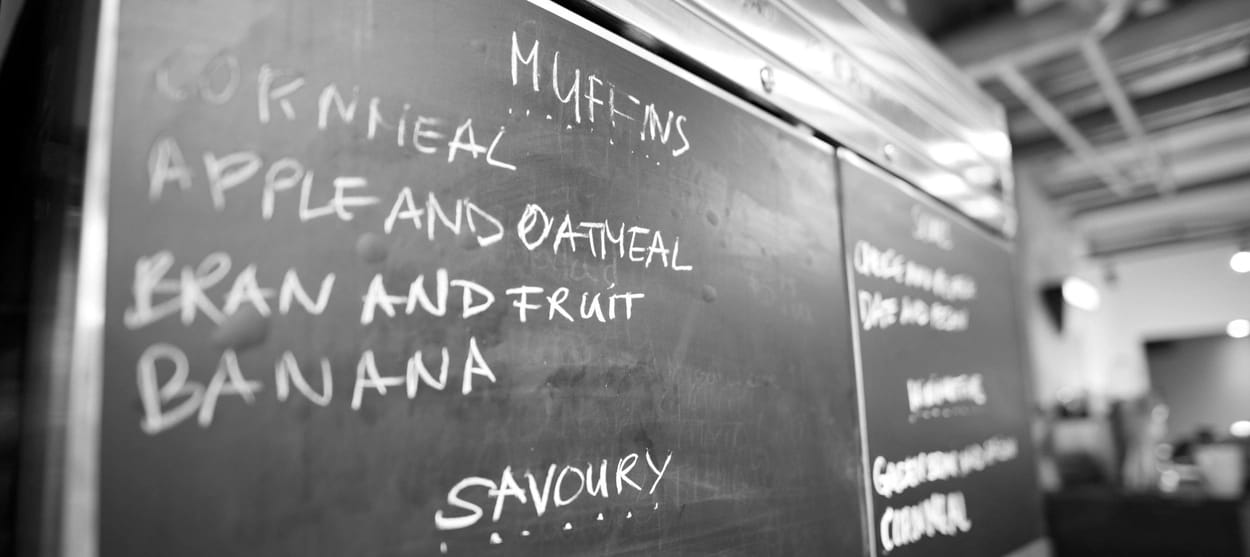 MUFFINS
CORNMEAL
APPLE AND OATMEAL
BRAN AND FRUIT
BANANA
SAVOURY
DATE AND PECAN
CORNMEAL